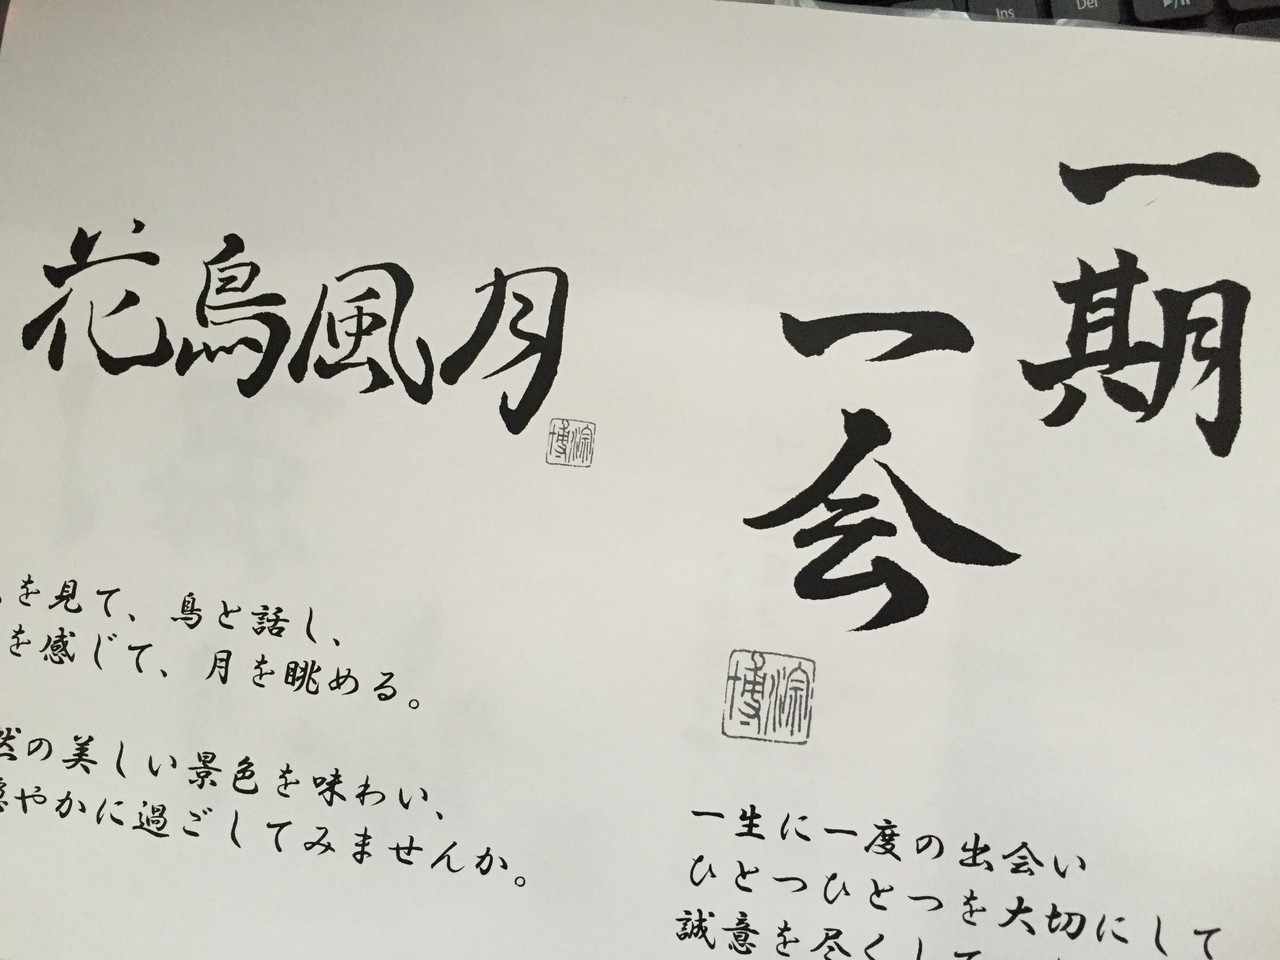 Ins
Del
花鳥風月
博淙
を見て、鳥と話し、
を感じて、月を眺める。
然の美しい景色を味わい、
穏やかに過ごしてみませんか。
一期
一会
博淙
一生に一度の出会い
ひとつひとつを大切にして
誠意を尽くして